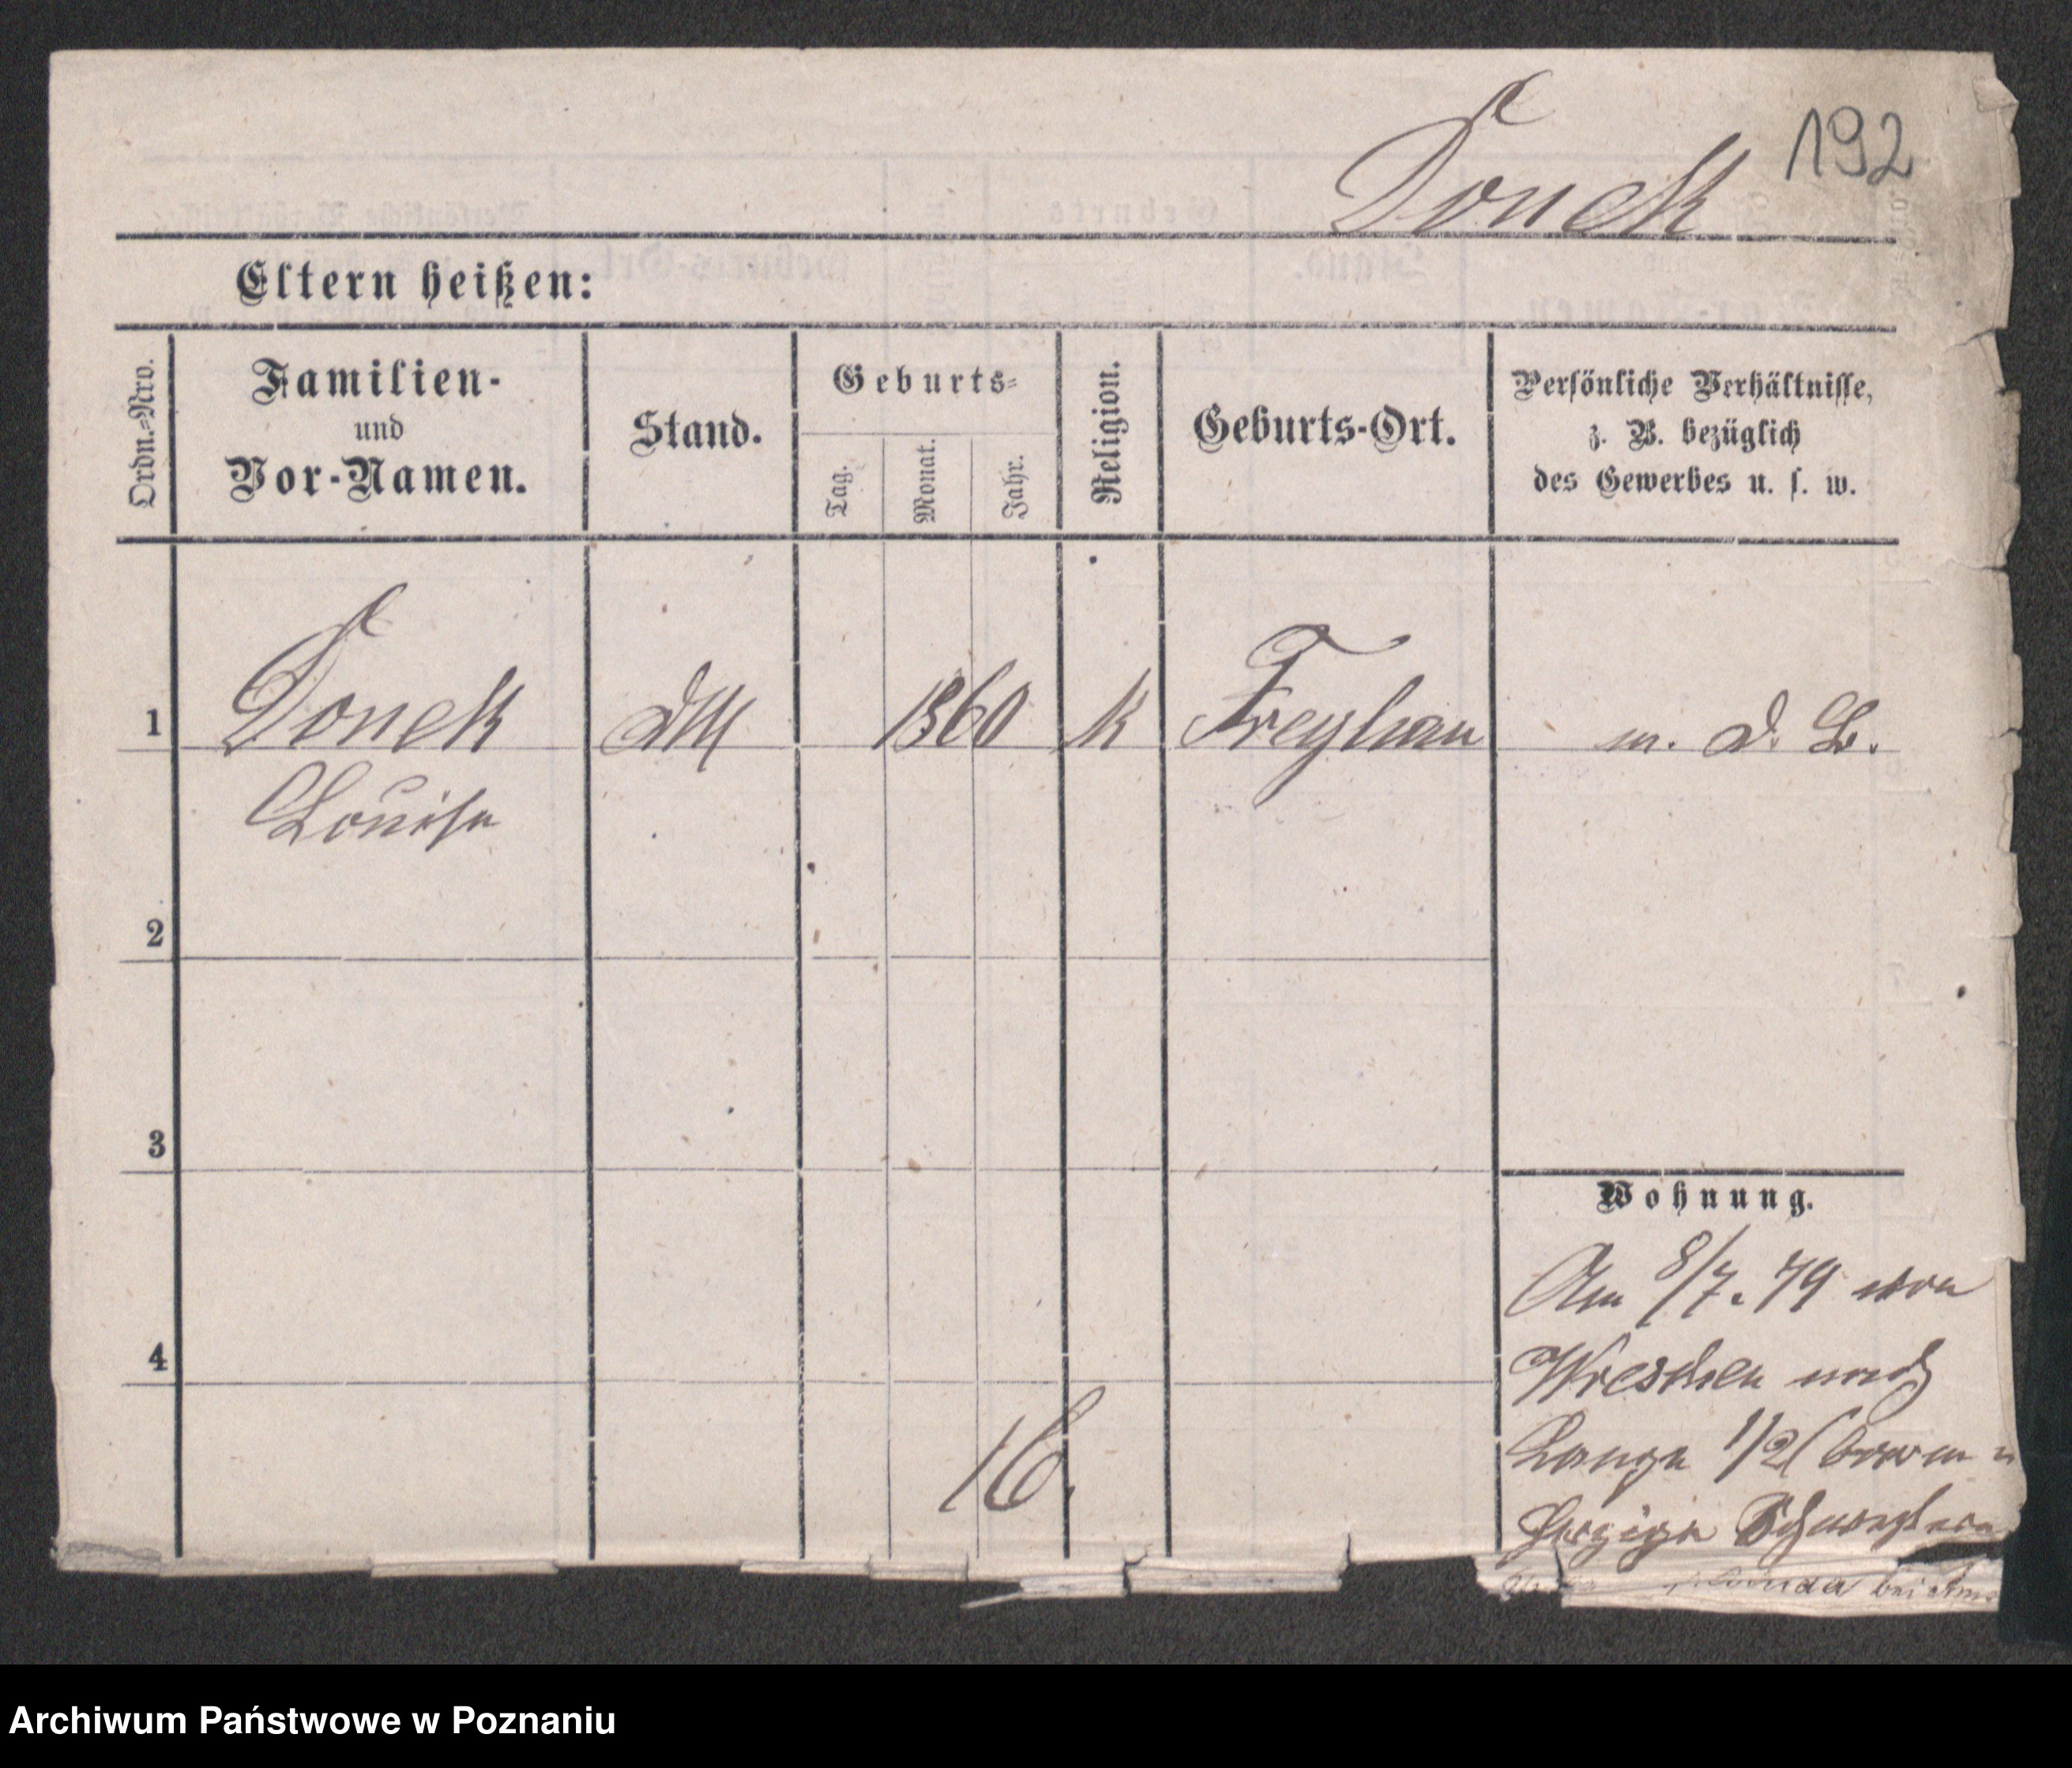 Donek
192
Eltern heißen:
Ordn.-Nro.
Familien-
und
Vor-Namen.
Stand.
Geburts-
Tag.
Monat.
Jahr.
Religion.
Geburts-Ort.
Persönliche Verhältnisse,
z. B. bezüglich
des Gewerbes u. s. w.
1
Donek
DM
1860
K
Freyhan
m. d. B.
Louise
2
3
Wohnung.
Am 8/7. 79 von
4
Wreschen nach
Lange 1/2
16.
bei
Archiwum Państwowe w Poznaniu